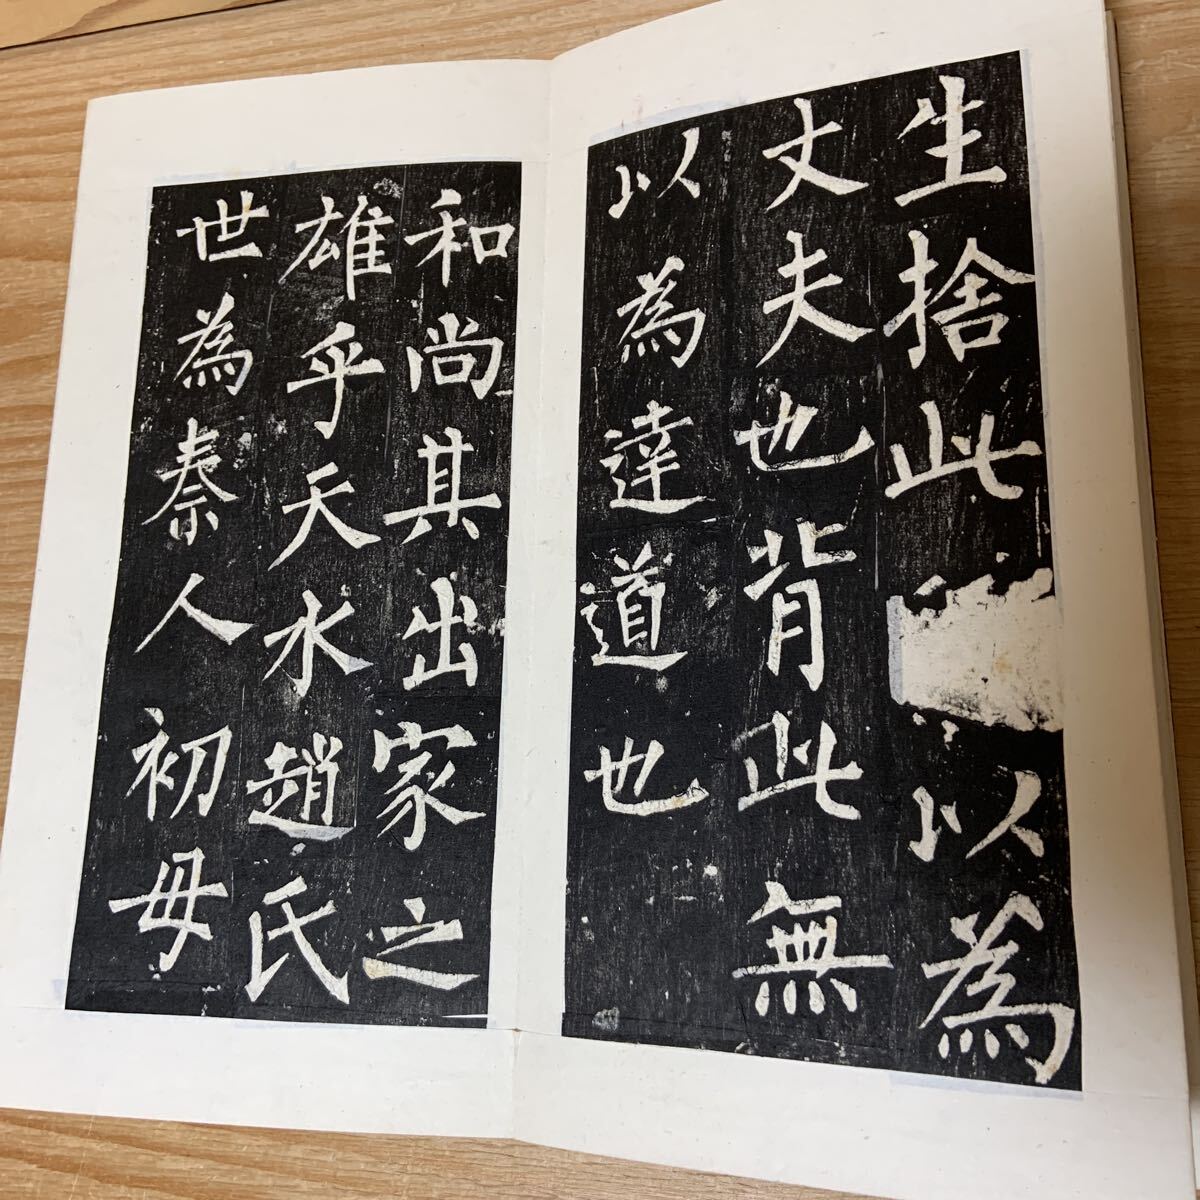 生捨此以為
丈夫也背此無
以為達道也
和尚其出家之
雄乎天水趙氏
世為秦人初母